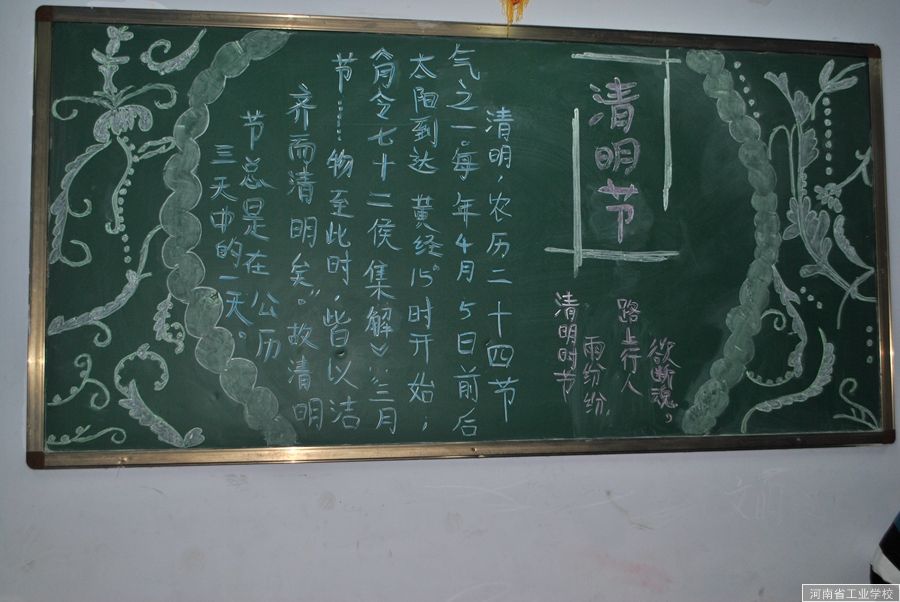 清明节
清明时节
雨纷纷,
路上行人
欲断魂,
清明,农历二十四节
气之一。每年4月5日前后
太阳到达 黄经15°时开始;
《月令七十二侯集解》:“三月
节……物至此时,皆以洁
齐而清明矣。”故清明
节总是在 公历
三天中的一天。
河南省工业学校